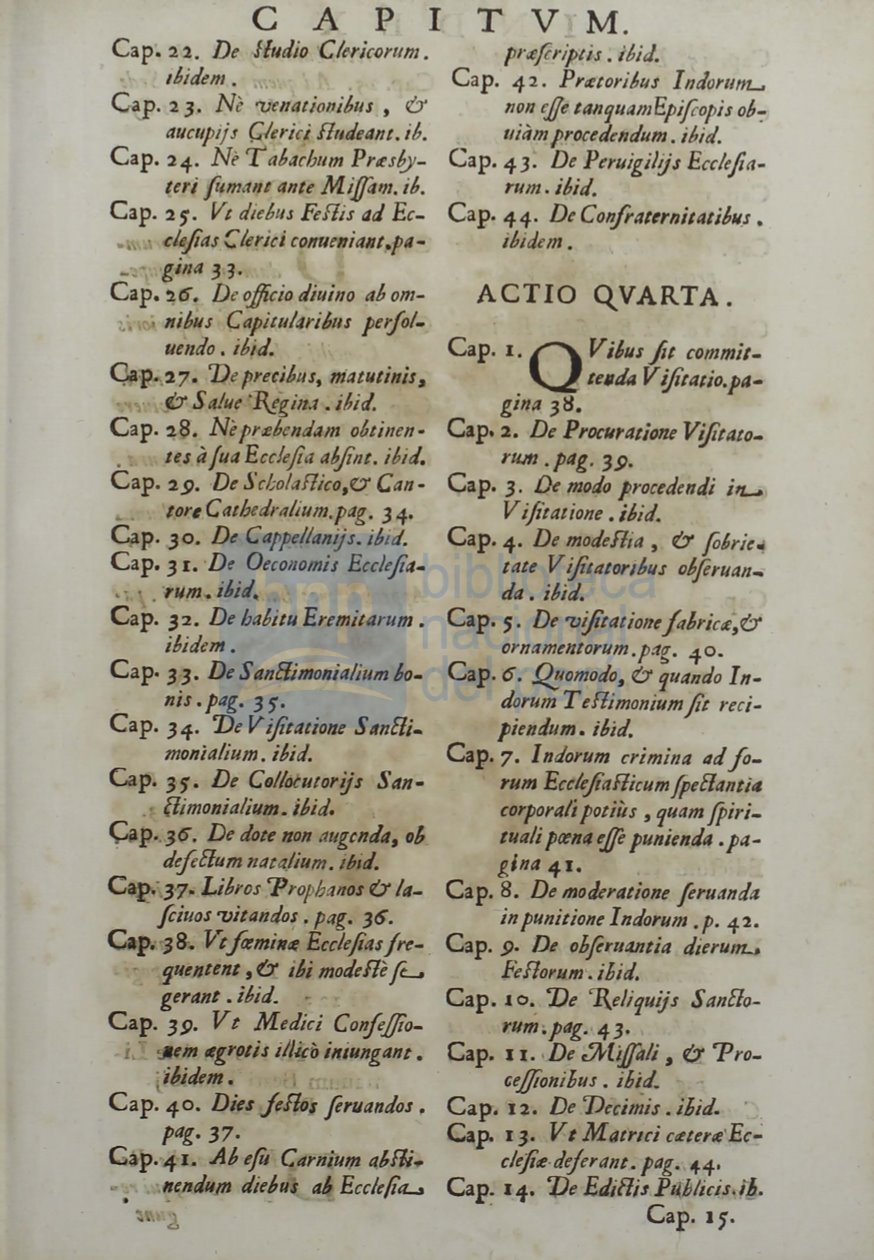 CAPITVM.
Cap. 22. De studio Clericorum.
ibidem.
Cap. 23. Nè venationibus, &
aucupijs Clerici studeant. ib.
Cap. 24. Nè Tabachum Præsby-
teri fumant ante Missam. ib.
Cap. 25. Vt diebus Festis ad Ec-
clesias Clerici conueniant. pa-
gina 33.
Cap. 26. De officio diuino ab om-
nibus Capitularibus persol-
uendo. ibid.
Cap. 27. De precibus, matutinis,
& Salue Regina. ibid.
Cap. 28. Nè præbendam obtinen-
tes à sua Ecclesia absint. ibid.
Cap. 29. De Scholastico, & Can-
tore Cathedralium. pag. 34.
Cap. 30. De Cappellanijs. ibid.
Cap. 31. De Oeconomis Ecclesia-
rum. ibid.
Cap. 32. De habitu Eremitarum.
ibidem.
Cap. 33. De Sanctimonialium bo-
nis. pag. 35.
Cap. 34. De Visitatione Sancti-
monialium. ibid.
Cap. 35. De Collocutorijs San-
ctimonialium. ibid.
Cap. 36. De dote non augenda, ob
defectum natalium. ibid.
Cap. 37. Libros Prophanos & la-
sciuos vitandos. pag. 36.
Cap. 38. Vt fœminæ Ecclesias fre-
quentent, & ibi modestè se
gerant. ibid.
Cap. 39. Vt Medici Confessio-
nem ægrotis illicò iniungant.
ibidem.
Cap. 40. Dies festos seruandos.
pag. 37.
Cap. 41. Ab esu Carnium absti-
nendum diebus ab Ecclesia
præscriptis. ibid.
Cap. 42. Prætoribus Indorum
non esse tanquam Episcopis ob-
uiàm procedendum. ibid.
Cap. 43. De Peruigilijs Ecclesia-
rum. ibid.
Cap. 44. De Confraternitatibus.
ibidem.
ACTIO QVARTA.
Cap. 1. QVibus sit commit-
tenda Visitatio. pa-
gina 38.
Cap. 2. De Procuratione Visitato-
rum. pag. 39.
Cap. 3. De modo procedendi in
Visitatione. ibid.
Cap. 4. De modestia, & sobrie-
tate Visitatoribus obseruan-
da. ibid.
Cap. 5. De visitatione fabricæ, &
ornamentorum. pag. 40.
Cap. 6. Quomodo, & quando In-
dorum Testimonium sit reci-
piendum. ibid.
Cap. 7. Indorum crimina ad fo-
rum Ecclesiasticum spectantia
corporali potiùs, quam spiri-
tuali pœna esse punienda. pa-
gina 41.
Cap. 8. De moderatione seruanda
in punitione Indorum. p. 42.
Cap. 9. De obseruantia dierum
Festorum. ibid.
Cap. 10. De Reliquijs Sancto-
rum. pag. 43.
Cap. 11. De Missali, & Pro-
cessionibus. ibid.
Cap. 12. De Decimis. ibid.
Cap. 13. Vt Matrici cæteræ Ec-
clesiæ deferant. pag. 44.
Cap. 14. De Edictis Publicis. ib.
Cap. 15.
biblioteca
nacional
del perú